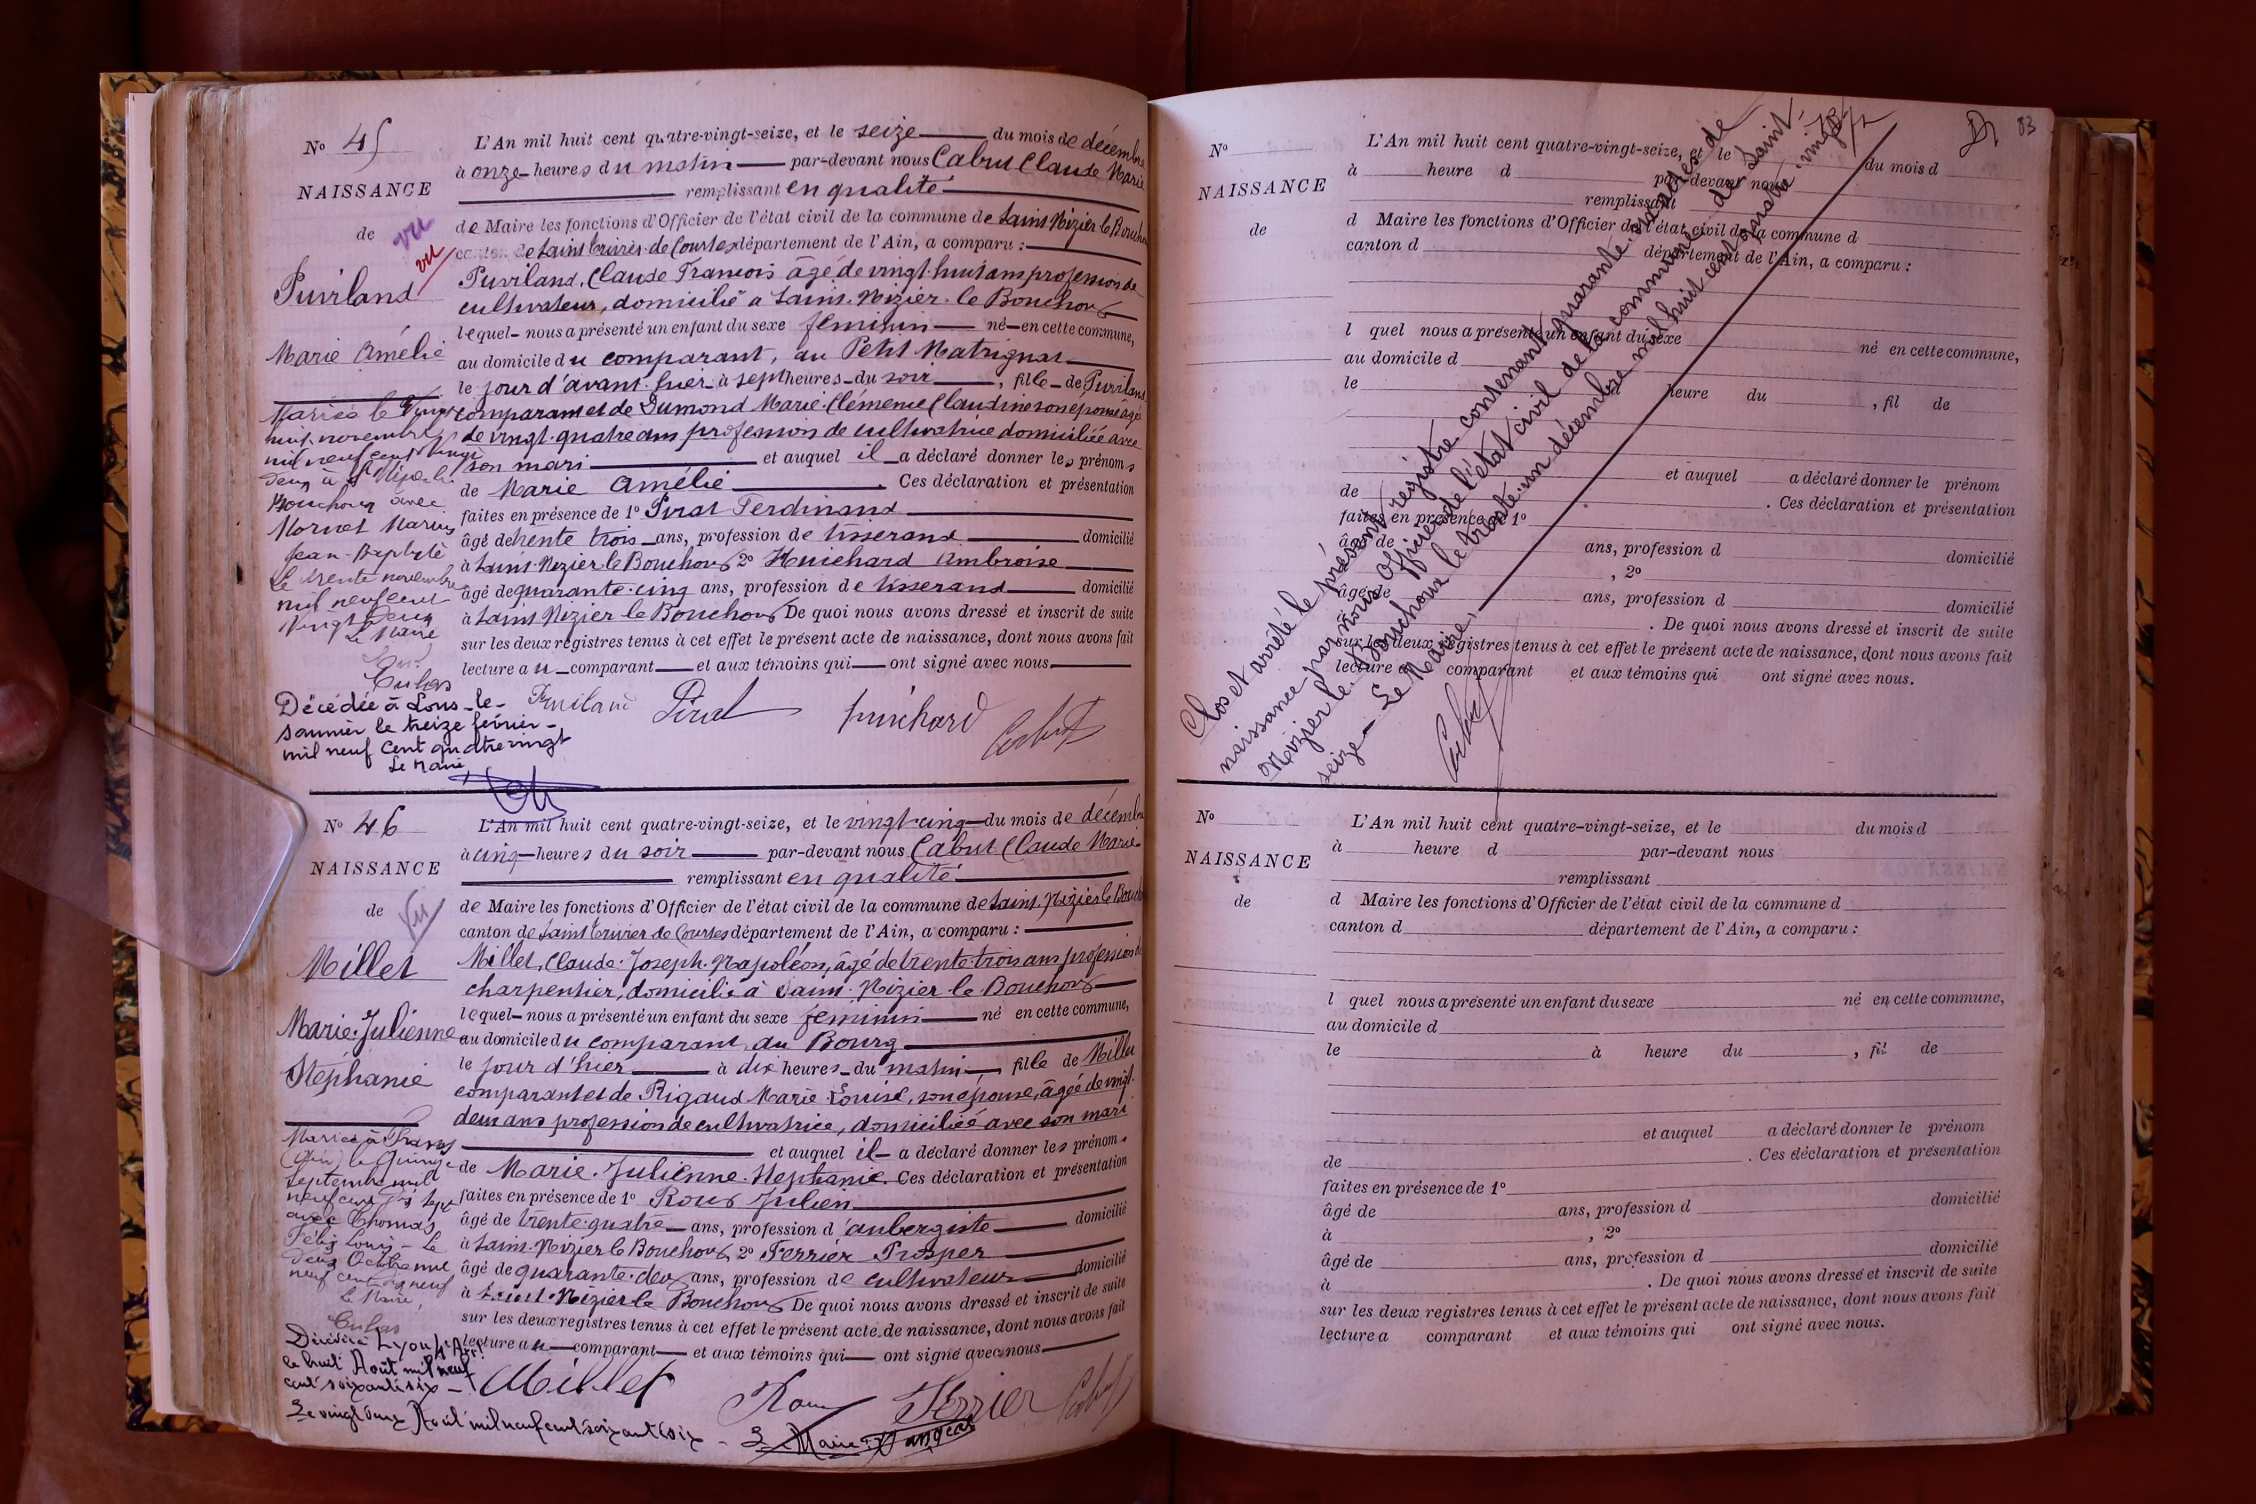 N° 45
NAISSANCE
de
vu
vu
Puvilland
Marie Amélie
Mariée le Vingt
neuf novembre
mil neuf cent vingt
deux à St Nizier le
Bouchoux avec
Mornet Marius
Jean-Baptiste
Le trente novembre
mil neuf cent
Vingt Deux
Le Maire
Décédée à Lons-le-
saunier le treize février
mil neuf cent quatre vingt
Le Maire
L'An mil huit cent quatre-vingt-seize, et le seize du mois de décembre
à onze heures du matin par-devant nous Cabut Claude Marie
remplissant en qualité
de Maire les fonctions d'Officier de l'état civil de la commune de Saint Nizier le Bouchoux
canton de Saint Trivier de Courtes département de l'Ain, a comparu :
Puvilland, Claude Francois âgé de vingt-huit ans profession de
cultivateur, domicilié à Saint-Nizier-le Bouchoux
lequel nous a présenté un enfant du sexe féminin né en cette commune,
au domicile du comparant, au Petit Matrignat
le jour d'avant-hier à sept heures du soir, fille de Puvilland
comparant et de Dumond Marie-Clémence Claudine son épouse âgée
de vingt-quatre ans profession de cultivatrice domiciliée avec
son mari et auquel il a déclaré donner les prénoms
de Marie Amélie. Ces déclaration et présentation
faites en présence de 1° Pirat Ferdinand
âgé de trente trois ans, profession de tisserand domicilié
à Saint-Nizier-le Bouchoux 2° Huichard Ambroise
âgé de quarante-cinq ans, profession de tisserand domicilié
à Saint Nizier le Bouchoux De quoi nous avons dressé et inscrit de suite
sur les deux registres tenus à cet effet le présent acte de naissance, dont nous avons fait
lecture au comparant et aux témoins qui ont signé avec nous
Puvilland Pirat huichard Cabut
N° 46
NAISSANCE
de
Vu
Millet
Marie-Julienne
Stéphanie
Mariée à
(Ain) le Quinze
septembre mil
neuf cent
avec Thomas
Félix Louis - Le
deux Octobre mil
neuf cent dix neuf
Le Maire,
Décédée à Lyon 4e Arrt
le huit Août mil neuf
cent soixante six
Le vingt deux Août mil neuf cent soixante six - Le Maire
L'An mil huit cent quatre-vingt-seize, et le vingt-cinq du mois de décembre
à cinq heures du soir par-devant nous Cabut Claude Marie
remplissant en qualité
de Maire les fonctions d'Officier de l'état civil de la commune de Saint-Nizier le Bouchoux
canton de Saint Trivier de Courtes département de l'Ain, a comparu :
Millet, Claude-Joseph-Napoléon, âgé de trente-trois ans profession de
charpentier, domicilié à Saint-Nizier-le Bouchoux
lequel nous a présenté un enfant du sexe féminin né en cette commune,
au domicile du comparant, au Bourg
le jour d'hier à dix heures du matin, fille de Millet
comparant et de Rigaud Marie-Louise, son épouse, âgée de vingt-
deux ans profession de cultivatrice, domiciliée avec son mari
et auquel il a déclaré donner les prénoms
de Marie-Julienne-Stephanie. Ces déclaration et présentation
faites en présence de 1° Roux Julien
âgé de trente-quatre ans, profession d'aubergiste domicilié
à Saint-Nizier le Bouchoux 2° Ferrier Prosper
âgé de quarante-deux ans, profession de cultivateur domicilié
à Saint-Nizier le Bouchoux De quoi nous avons dressé et inscrit de suite
sur les deux registres tenus à cet effet le présent acte de naissance, dont nous avons fait
lecture au comparant et aux témoins qui ont signé avec nous
Millet Roux Ferrier Cabut
83
N°
NAISSANCE
de
L'An mil huit cent quatre-vingt-seize, et le du mois d
à heure d par-devant nous
remplissant
d Maire les fonctions d'Officier de l'état civil de la commune d
canton d département de l'Ain, a comparu :
l quel nous a présenté un enfant du sexe né en cette commune,
au domicile d
le à heure du , fil de
et auquel a déclaré donner le prénom
de . Ces déclaration et présentation
faites en présence de 1°
âgé de ans, profession d domicilié
à , 2°
âgé de ans, profession d domicilié
à . De quoi nous avons dressé et inscrit de suite
sur les deux registres tenus à cet effet le présent acte de naissance, dont nous avons fait
lecture a comparant et aux témoins qui ont signé avec nous.
Clos et arrêté le présent registre contenant quarante-six actes de
naissance, par nous Officier de l'état civil de la commune de Saint-
Nizier le Bouchoux le trente-un décembre mil huit cent quatre-vingt
seize - Le Maire,
Cabut
N°
NAISSANCE
de
L'An mil huit cent quatre-vingt-seize, et le du mois d
à heure d par-devant nous
remplissant
d Maire les fonctions d'Officier de l'état civil de la commune d
canton d département de l'Ain, a comparu :
l quel nous a présenté un enfant du sexe né en cette commune,
au domicile d
le à heure du , fil de
et auquel a déclaré donner le prénom
de . Ces déclaration et présentation
faites en présence de 1°
âgé de ans, profession d domicilié
à , 2°
âgé de ans, profession d domicilié
à . De quoi nous avons dressé et inscrit de suite
sur les deux registres tenus à cet effet le présent acte de naissance, dont nous avons fait
lecture a comparant et aux témoins qui ont signé avec nous.